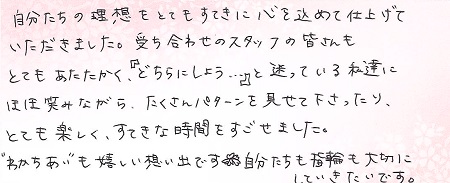 自分たちの理想をとてもすてきに心を込めて仕上げて
いただきました。受ち合わせのスタッフの皆さんも
とてもあたたかく、『どちらにしよう…』と迷っている私達に
ほほ笑みながら、たくさんパターンを見せて下さったり、
とても楽しく、すてきな時間をすごせました。
"わかちあい"も嬉しい想い出です 自分たちも指輪も大切に
していきたいです。